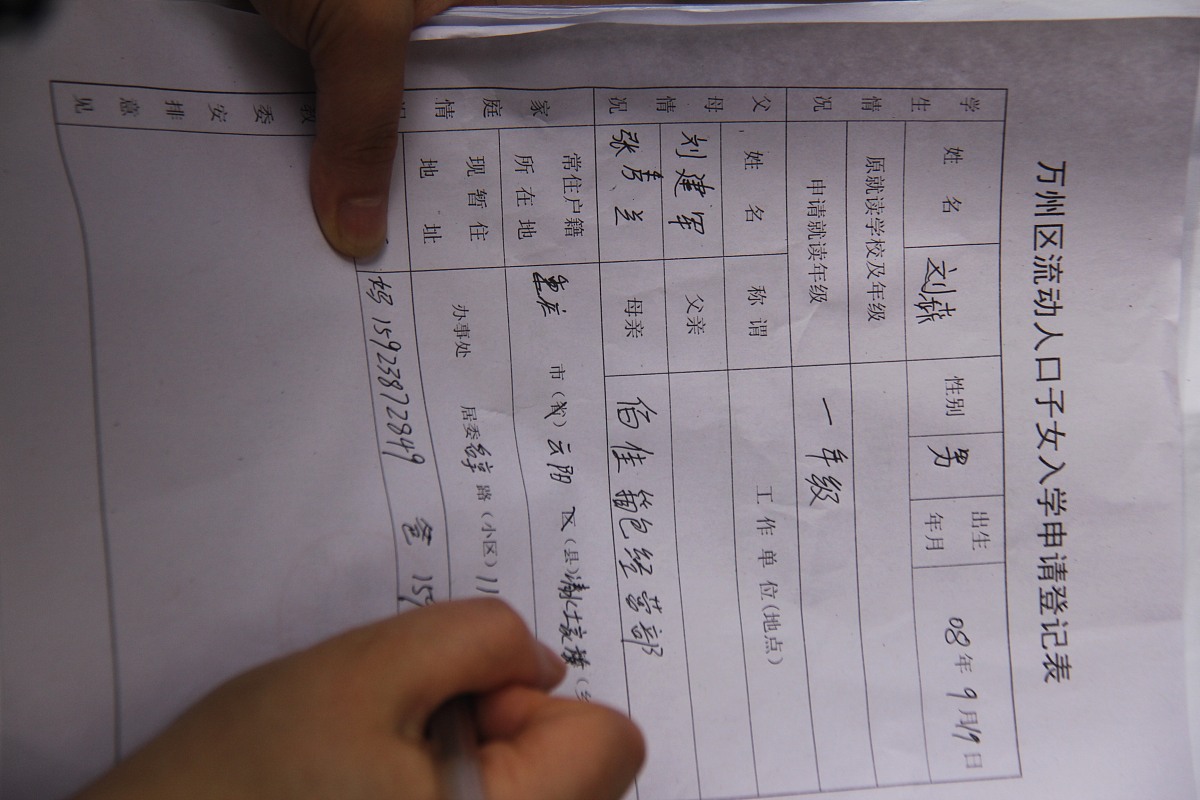 万州区流动人口子女入学申请登记表
学生情况 姓名 刘 性别 男 出生年月 08年9月19日
原就读学校及年级
申请就读年级 一年级
父母情况 姓名 称谓 工作单位(地点)
刘建军 父亲
张 兰 母亲 佰佳箱包经营部
家庭情 常住户籍所在地 重庆 市(省) 云阳 区(县)
现暂住地址 办事处 居委 路(小区) 11
妈 15923872849 爸 159
教委安排意见